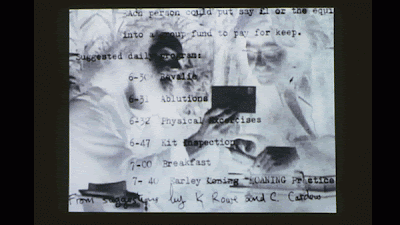 Each person could put say £1 or the equi
into a group fund to pay for keep.
Suggested daily program:
6-30 Revalie
6-31 Ablutions
6-32 Physical Excercises
6-47 Kit Inspection
7-00 Breakfast
7-40 Harley Coming MOANING Practice
From suggestions by K Rowe and C. Cardew